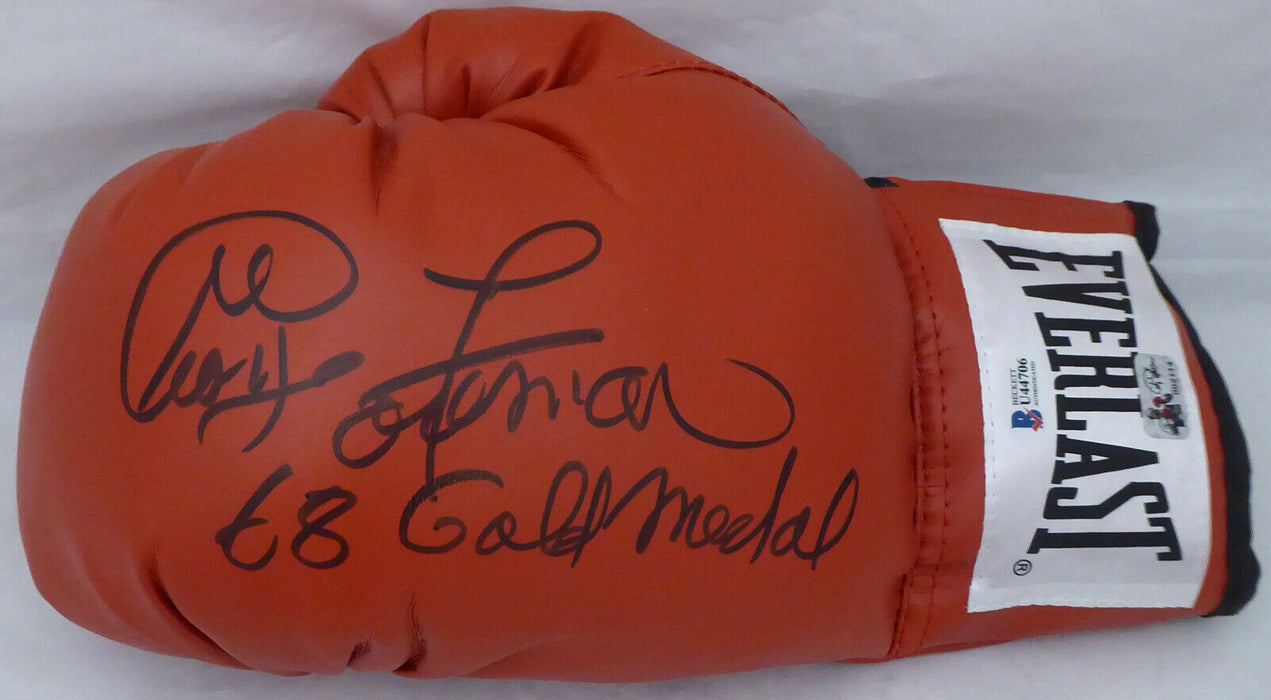 George Foreman
68 Gold Medal
EVERLAST
®
BECKETT
U44706
AUTHENTICATED